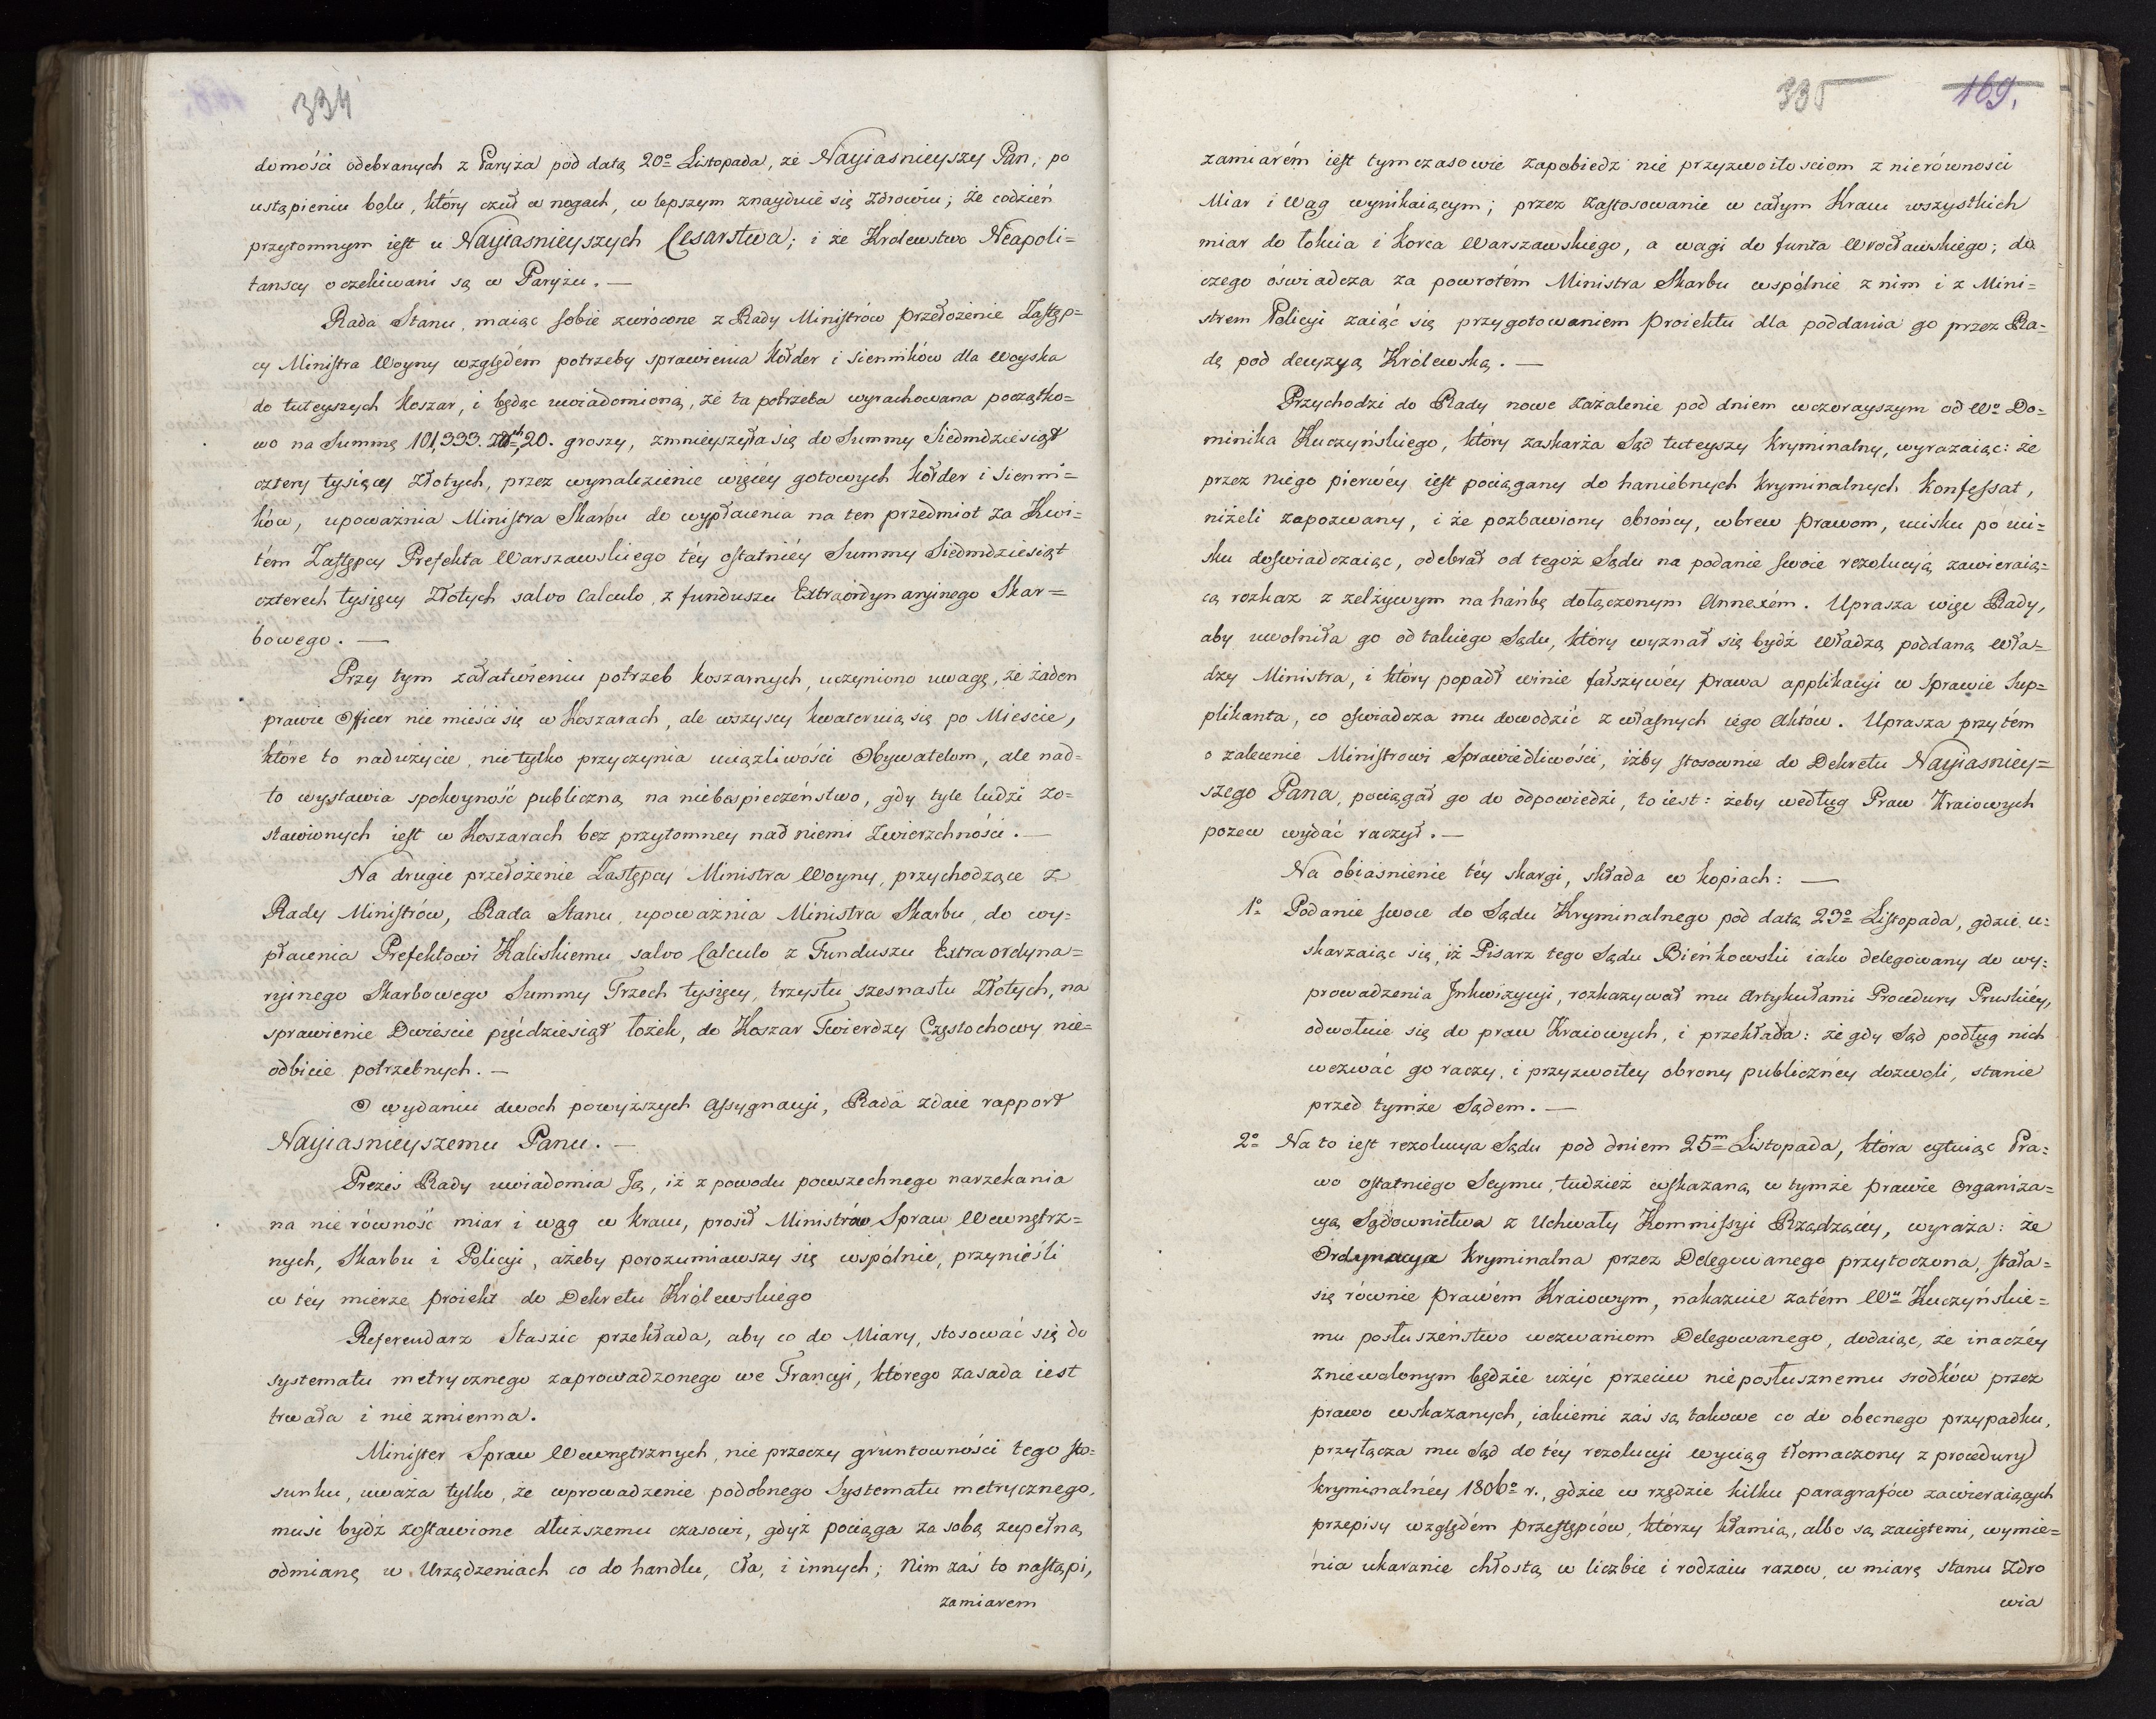 334
domości odebranych z Paryża pod datą 20º Listopada, że Nayiasnieyszy Pan, po
ustąpieniu bolu, który czuł w nogach, w lepszym znayduie się zdrowiu; że codzień
przytomnym iest u Nayiasnieyszych Cesarstwa; i że Krolewstwo Neapoli=
tanscy oczekiwani są w Paryżu. —
Rada Stanu, maiąc sobie zwrócone z Rady Ministrów przełożenie Zastęp=
cy Ministra Woyny względem potrzeby sprawienia kołder i sienników dla woyska
do tuteyszych koszar, i będąc uwiadomioną, że ta potrzeba wyrachowana początko=
wo na Summę 101,333. 20. groszy, zmnieyszyła się do Summy Siedmdziesiąt
cztery tysięcy Złotych, przez wynalezienie więcéy gotowych kołder i sienni=
ków, upoważnia Ministra Skarbu do wypłacenia na ten przedmiot za Kwi=
tém Zastępcy Prefekta Warszawskiego téy ostatniéy Summy Siedmdziesiąt
czterech tysięcy Złotych salvo Calculo, z funduszu Extraordynaryinego Skar=
bowego. —
Przy tym załatwieniu potrzeb koszarnych, uczyniono uwagę, że żaden
prawie Officer nie mieści się w Koszarach, ale wszyscy kwateruią się po Miescie,
które to nadużycie, nie tylko przyczynia uciążliwości Obywatelom, ale nad=
to wystawia spokoyność publiczną na niebespieczeństwo, gdy tyle ludzi zo=
stawionych iest w Koszarach bez przytomney nad niemi Zwierzchności. —
Na drugie przełożenie Zastępcy Ministra Woyny, przychodzące z
Rady Ministrów, Rada Stanu, upoważnia Ministra Skarbu, do wy=
płacenia Prefektowi Kaliskiemu salvo Calculo z Funduszu Extraordyna=
ryinego Skarbowego Summy Trzech tysięcy, trzystu szesnastu Złotych, na
sprawienie Dwieście pięćdziesiąt łożek, do Koszar Twierdzy Częstochowy nie=
odbicie potrzebnych. —
O wydaniu dwoch powyższych Assygnacyi, Rada zdaie rapport
Nayiasnieyszemu Panu. —
Prezes Rady uwiadomia Ją, iż z powodu powszechnego narzekania
na nie równość miar i wag w Kraiu, prosił Ministrów Spraw Wewnętrz=
nych, Skarbu i Policyi, ażeby porozumiawszy się wspólnie, przynieśli
w téy mierze proiekt do Dekretu Królewskiego
Referendarz Staszic przekłada, aby co do Miary, stosować się do
systematu metrycznego zaprowadzonego we Francyi, którego zasada iest
trwała i nie zmienna.
Minister Spraw Wewnętrznych, nie przeczy gruntowności tego sto=
sunku, uważa tylko, że wprowadzenie podobnego Systematu metrycznego,
musi bydź zostawione dłuższemu czasowi, gdyż pociąga za sobą zupełną
odmianę w Urządzeniach co do handlu, Cła, i innych; Nim zaś to nastąpi,
zamiarem
335
169.
zamiarém iest tymczasowie zapobiedz nie przyzwoitosciom z nierówności
Miar i Wag wynikaiącym; przez zastosowanie w całym Kraiu wszystkich
miar do łokcia i korca Warszawskiego, a wagi do funta Wrocławskiego; do
czego oświadcza za powrotém Ministra Skarbu wspólnie z nim i z Mini=
strem Policyi zaiąć się przygotowaniem proiektu dla poddania go przez Ra=
dę pod decyzyą Królewską. —
Przychodzi do Rady nowe zażalenie pod dniem wczorayszym od Wº Do=
minika Kuczyńskiego, który zaskarża Sąd tuteyszy kryminalny, wyrażaiąc: że
przez niego pierwéy iest pociągany do haniebnych kryminalnych konfessat,
niżeli zapozwany, i że pozbawiony obrońcy, wbrew prawom, ucisku po uci=
sku doswiadczaiąc, odebrał od tegoż Sądu na podanie swoie rezolucyą zawieraią=
cą rozkaz z zelżywym na hańbę dołączonym Annexém. Uprasza więc Rady,
aby uwolniła go od takiego Sądu, który wyznał się bydź Władzą poddaną Wła=
dzy Ministra, i który popadł winie fałszywéy prawa applikacyi w Sprawie Sup=
plikanta, co oswiadcza mu dowodzić z własnych iego Aktów. Uprasza przytém
o zalecenie Ministrowi Sprawiedliwości, iżby stosownie do Dekretu Nayiasniey=
szego Pana, pociągał go do odpowiedzi, to iest: żeby według Praw Kraiowych
pozew wydać raczył. —
Na obiasnienie téy skargi, składa w kopiach: —
1º Podanie swoie do Sądu Kryminalnego pod datą 23º Listopada, gdzie u=
skarżaiąc się, iż Pisarz tego Sądu Bieńkowski iako delegowany do wy=
prowadzenia Inkwizycyi, rozkazywał mu Artykułami Procedury Pruskiéy,
odwołuie się do praw Kraiowych, i przekłada: że gdy Sąd podług nich
wezwać go raczy, i przyzwoitey obrony publicznéy dozwoli, stanie
przed tymże Sądem. —
2º Na to iest rezolucya Sądu pod dniem 25m Listopada, która cytuiąc Pra=
wo ostatniego Seymu, tudzież wskazaną w tymże prawie organiza=
cyą Sądownictwa z Uchwały Kommissyi Rządzącéy, wyraża: że
Ordynacya kryminalna przez Delegowanego przytoczona, stała=
się równie prawém Kraiowym, nakazuie zatém Wu Kuczyńskie=
mu posłuszeństwo wezwaniom Delegowanego, dodaiąc, że inaczéy
zniewolonym będzie użyć przeciw nieposłusznemu srodków przez
prawo wskazanych, iakiemi zaś są takowe co do obecnego przypadku,
przyłącza mu Sąd do téy rezolucyi wyciąg tłomaczony z procedury
kryminalnéy 1806º r., gdzie w rzędzie kilku paragrafów zawieraiących
przepisy względém przestępców, którzy kłamią, albo są zaciętemi, wymie=
nia ukaranie chłostą w liczbie i rodzaiu razow, w miarę stanu Zdro
wia